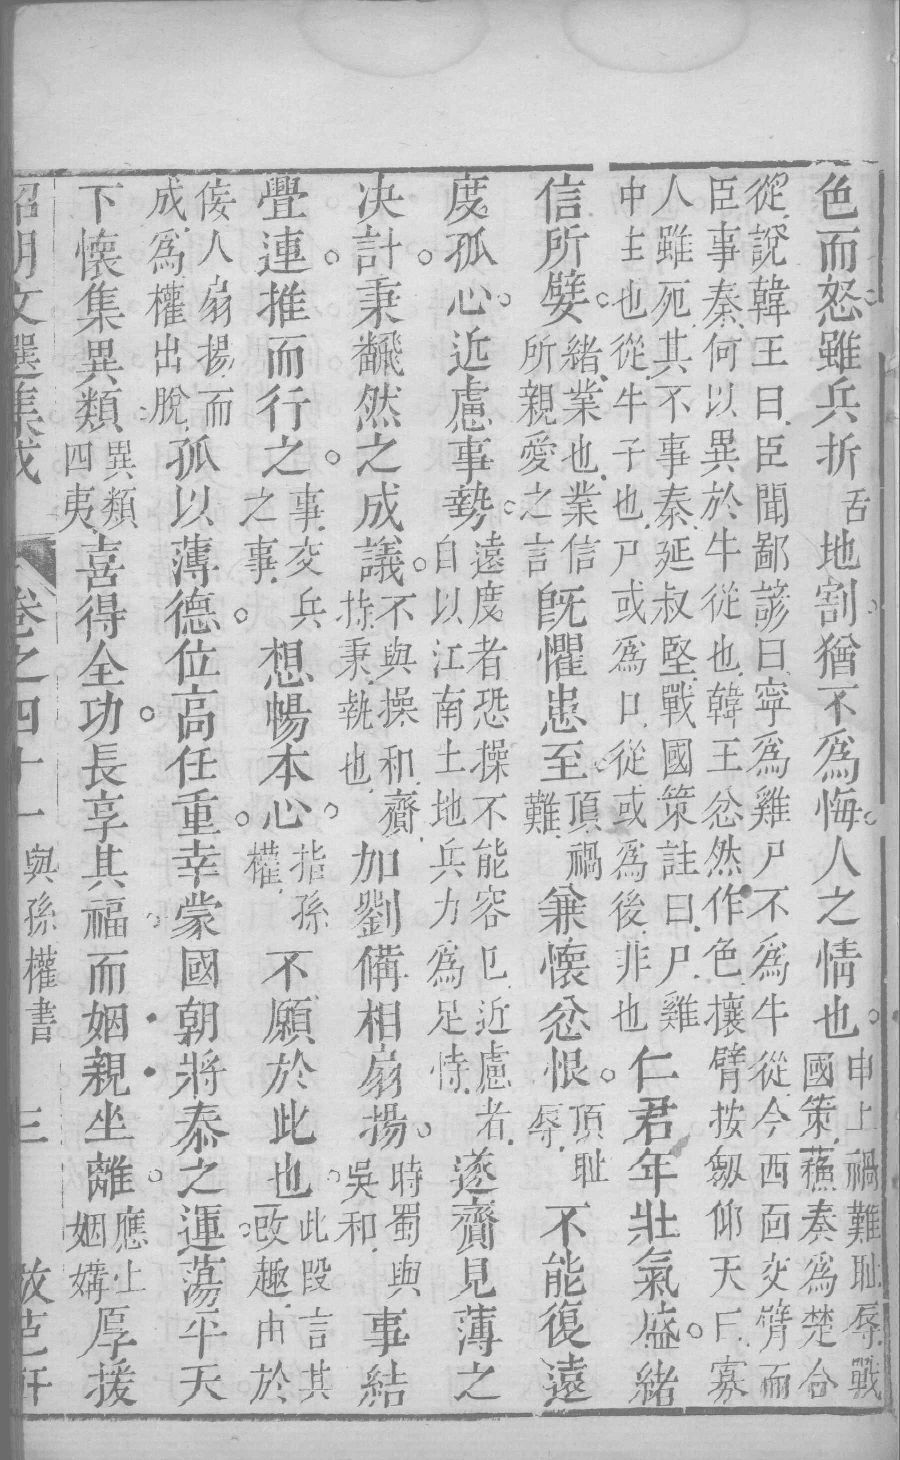 色而怒雖兵折舌地割猶不爲悔人之情也申上禍難耻辱戰國策蘇秦爲楚合
從說韓王曰臣聞鄙諺曰寧爲雞尸不爲牛從今西面交臂而臣事秦何以異於牛從也韓王忿然作色攘臂按劔仰天曰寡
人雖死其不事秦延叔堅戰國策註曰尸雞中主也從牛子也尸或爲口從或爲後非也仁君年壯氣盛緒
信所嬖緒業也業信所親愛之言旣懼患至頂禍難兼懷忿恨頂耻辱不能復遠
度孤心近慮事勢遠度者恐操不能容已近慮者自以江南土地兵力爲足恃遂齎見薄之
决計秉翻然之成議不與操和齎持秉執也加劉備相扇揚時蜀與吳和事結
舋連推而行之事交兵之事想暢本心指孫權不願於此也此段言其改趣由於
倿人扇揚而成爲權出脫孤以薄德位高任重幸蒙國朝將泰之運蕩平天
下懷集異類異類四夷喜得全功長享其福而姻親坐離應上姻媾厚援
昭明文選集成 卷之四十一 與孫權書 三